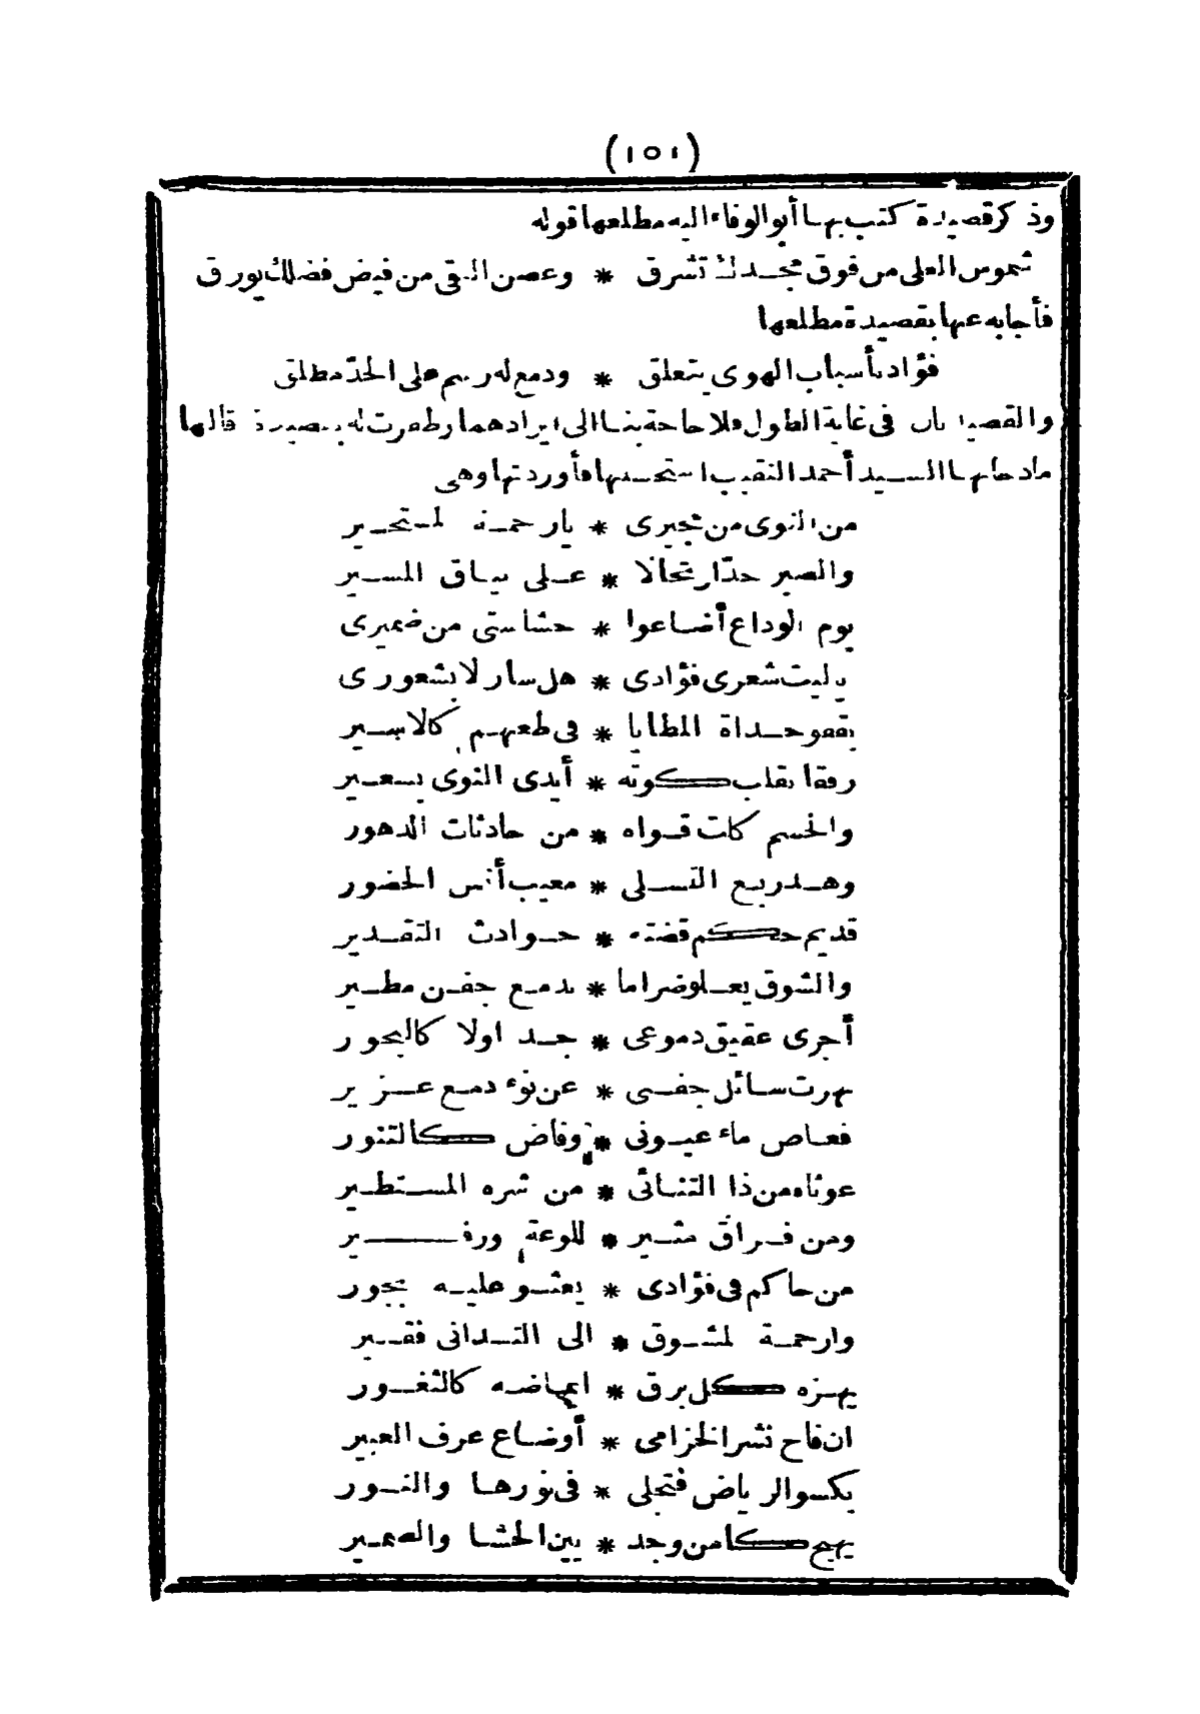 (١٥١)
وذكر قصيدة كتب بها أبو الوفاء اليه مطلعها قوله
شموس العلى من فوق مجدك تشرق * وغصن التقى من فيض فضلك يورق
فأجابه عنها بقصيدة مطلعها
فؤاد بأسباب الهوى يتعلق * ودمع له رسم على الخدّ مطلق
والقصيدتان فى غاية الطول فلا حاجة بنا الى ايرادهما وظفرت له بقصيدة قالها
مادحا بها السيد أحمد النقيب استحسنتها فأوردتها وهى
من النوى من مجيرى * يارحمة لمستجير
والصبر حدّ ارتحالا * على نياق المسير
يوم الوداع أضاعوا * حشاشتى من ضميرى
ياليت شعرى فؤادى * هل سار لا بشعورى
يقفو حداة المطايا * فى ظعنهم كالاسير
رفقا بقلب كوته * أيدى النوى بسعير
والجسم كلت قواه * من حادثات الدهور
وهد ربع التسلى * مغيب أنس الحضور
قديم حكم قضته * حوادث التقدير
والشوق يعلو ضراما * بدمع جفن مطير
أجرى عقيق دموعى * جداولا كالبحور
نهرت سائل جفنى * عن نوء دمع غزير
فغاض ماء عيونى * وفاض كالتنور
غوثاه من ذا التنائى * من شره المستطير
ومن فراق مثير * للوعة وزفير
من حاكم فى فؤادى * يعثو عليه بجور
وارحمة لمشوق * الى التدانى فقير
يهزه كل برق * ايماضه كالثغور
ان فاح نشر الخزامى * أوضاع عرف العبير
يكسو الرياض فتجلى * فى نورها والنور
يهيج كامن وجد * بين الحشا والضمير